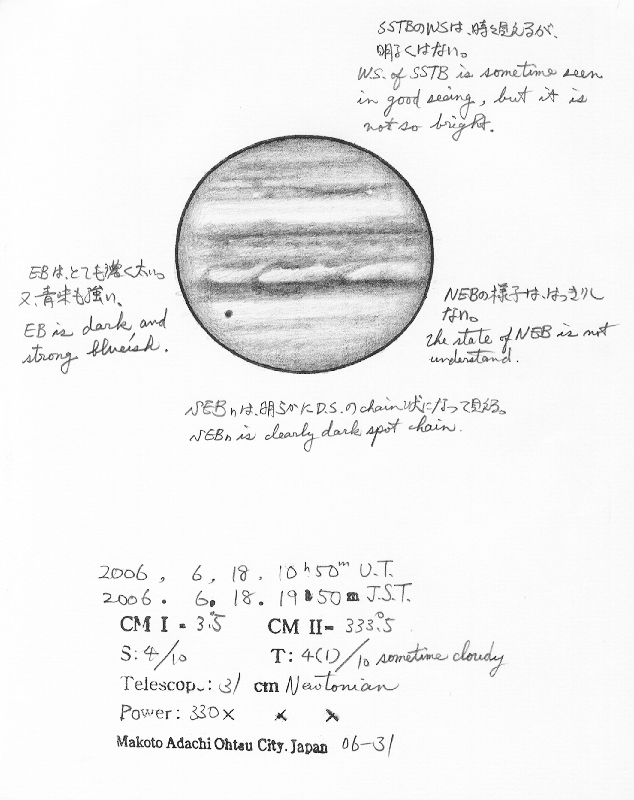 SSTBのWSは、時々見えるが、
明るくはない。
W.S. of SSTB is sometime seen
in good seeing, but it is
not so bright.
EBは、とても濃く太い。
又、青味も強い、
EB is dark and
strong blueish.
NEBの様子は、はっきりし
ない。
the state of NEB is not
understand.
NEBnは、明らかにD.S.のchain状になって見える。
NEBn is clearly dark spot chain.
2006, 6, 18. 10h50m U.T.
2006. 6. 18. 19h50m J.S.T.
CM I = 3°.5 CM II= 333°.5
S: 4/10 T: 4(1)/10 sometime cloudy
Telescop.: 31 cm Newtonian
Power: 330× × ×
Makoto Adachi Ohtsu City. Japan 06-31